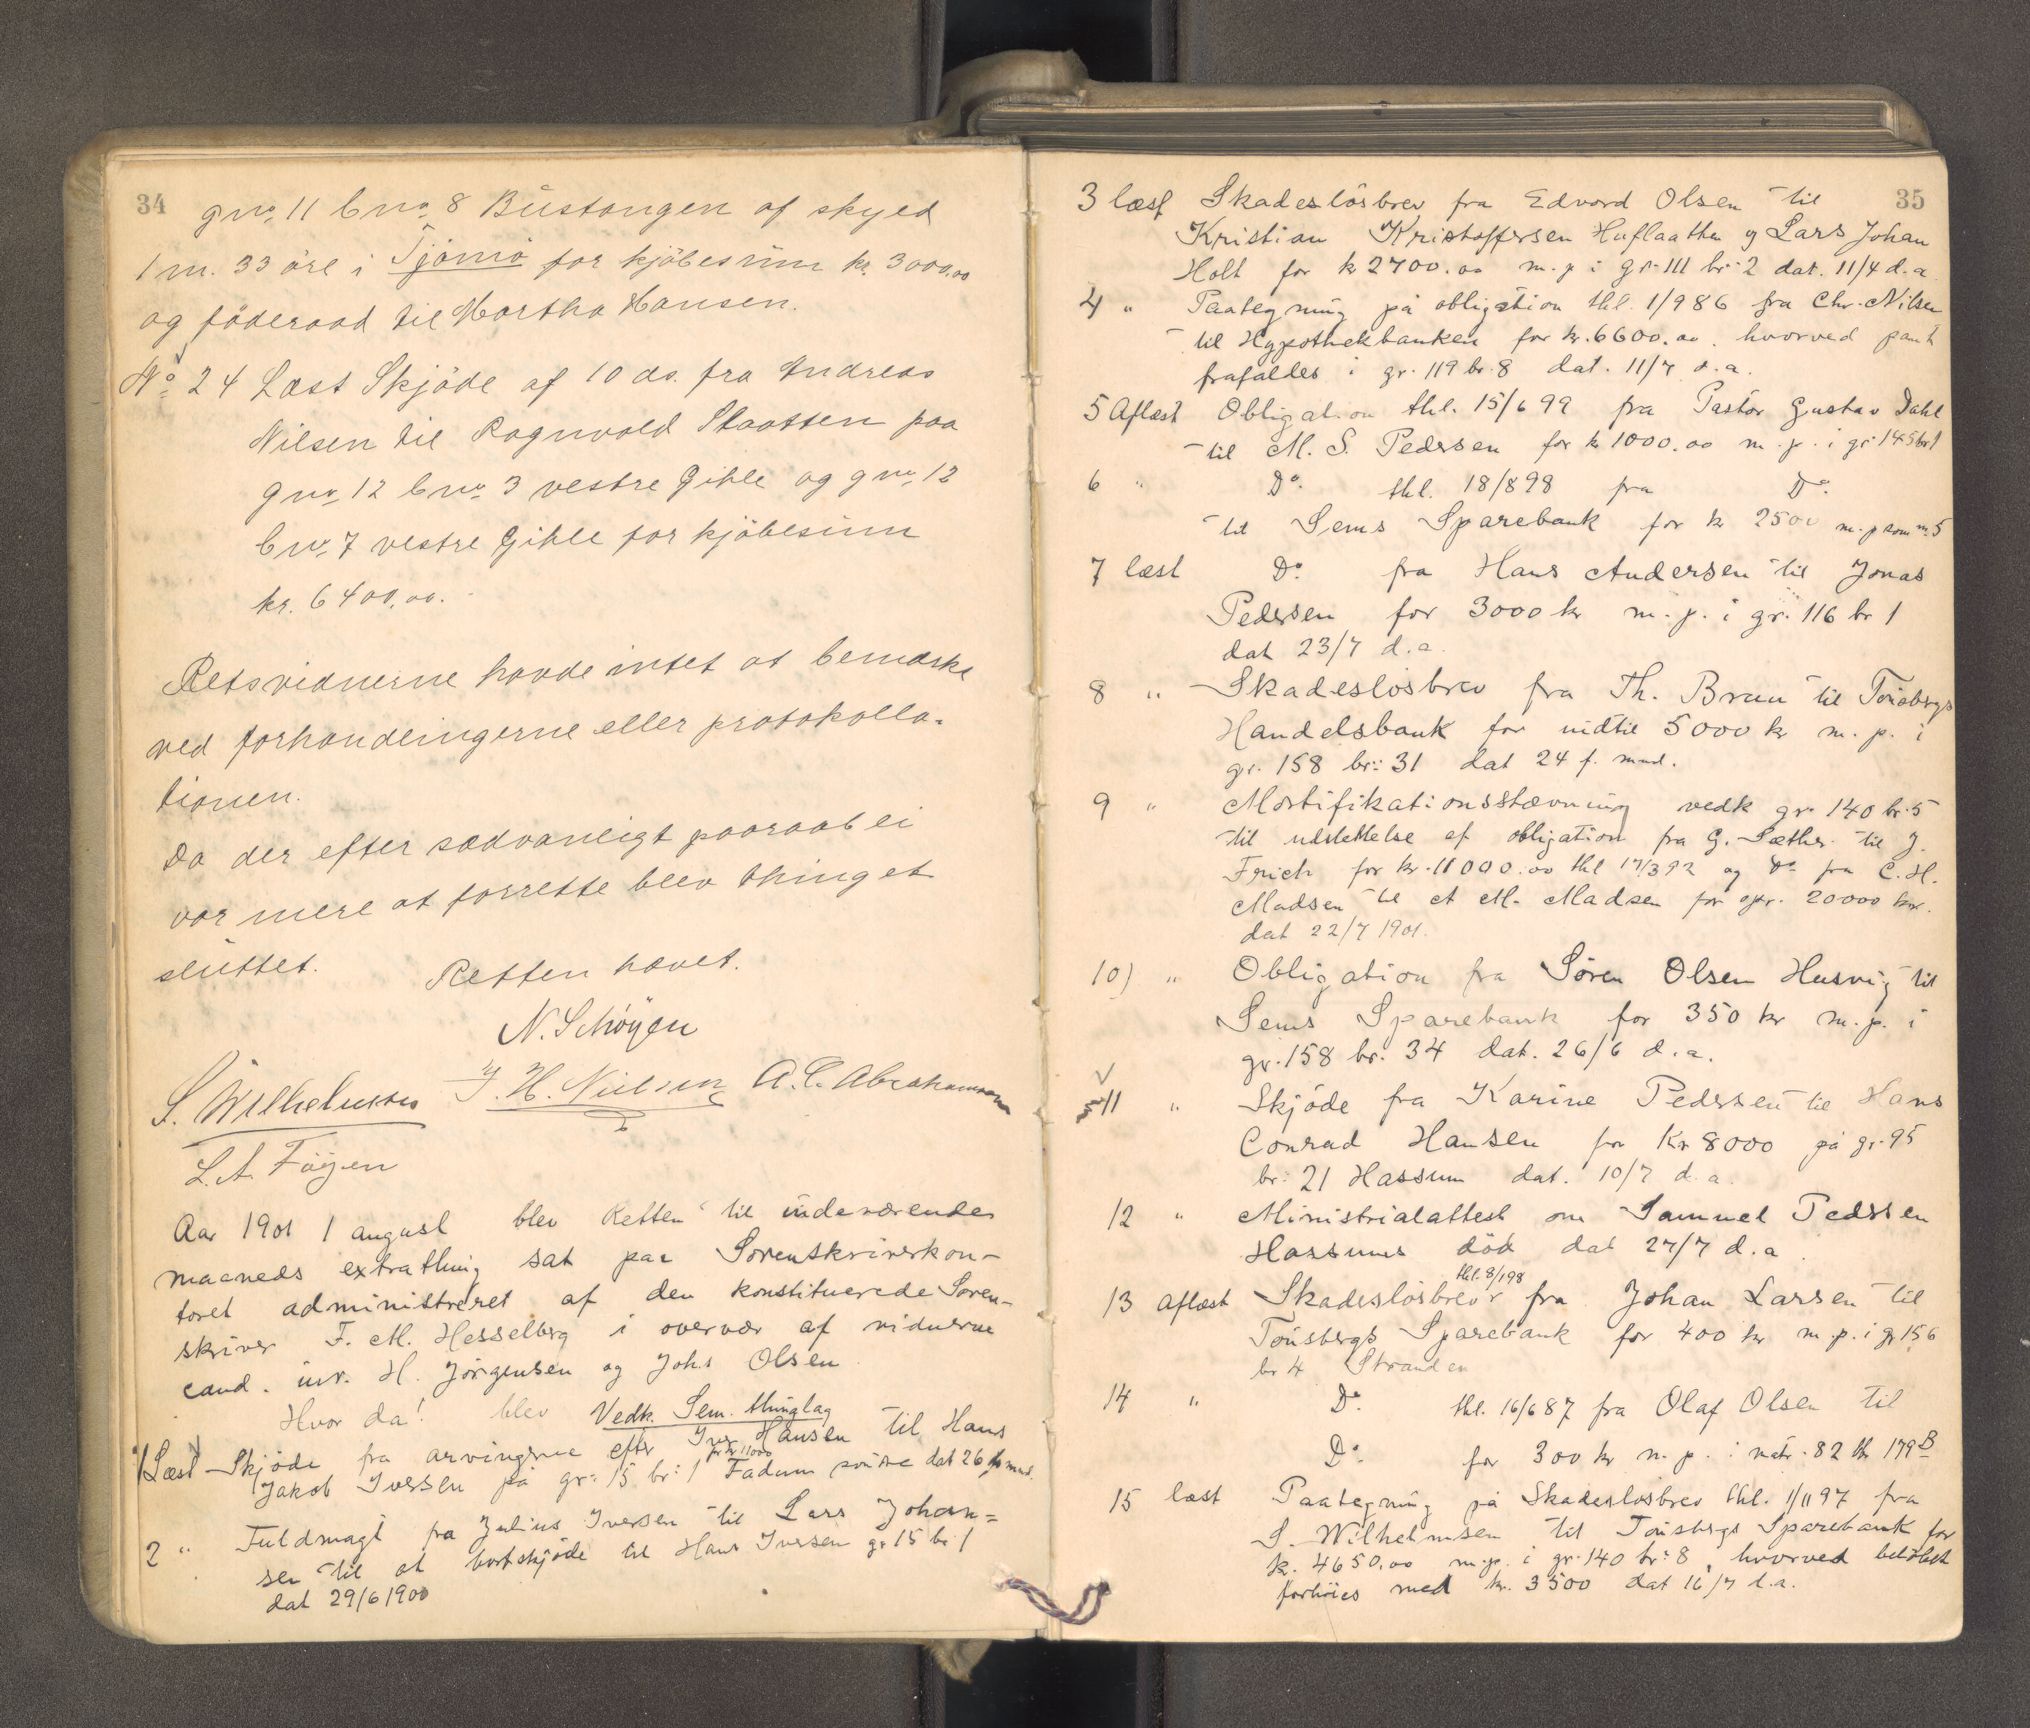 34
gno. 11 bno. 8 Bustangen af skyld
1 m. 33 öre i Tjömö for kjöbesum kr. 3000,00
og föderaad til Martha Hansen.
No 24 Læst Skjöde af 10 ds. fra Andreas
Nilsen til Ragnvald Staatten paa
gno. 12 bno. 3 vestre Gihle og gno. 12
bno. 7 vestre Gihle for kjöbesum
kr. 6400,00.
Retsvidnerne havde intet at bemærke
ved forhandlingerne eller protokolla-
tionen.
Da der efter sædvanligt paaraab ei
var mere at forrette blev thinget
sluttet.
Retten hævet.
N. Schöyen
S. Wilhelmsen J. H. Nielsen A. C. Abrahamsen
L. A. Föyen
Aar 1901 1 august blev Retten til indeværende
maaneds extrathing sat paa Sorenskriverkon-
toret administreret af den konstituerede Soren-
skriver F. M. Hesselberg i overvær af vidnerne
cand. jur. H. Jörgensen og Johs Olsen
Hvor da! blev Vedk. Sem. thinglag
1 Læst Skjöde fra arvingerne efter Iver Hansen til Hans
for kr 11000
Jakob Iversen på gr: 15 br: 1 Fadum söndre dat 26 f mnd.
2 " Fuldmagt fra Julius Iversen til Lars Johan=
sen til at bortskjöde til Hans Iversen gr 15 br 1
dat 29/6 1900
35
3 læst Skadeslösbrev fra Edvard Olsen til
Kristian Kristoffersen Huflaatten og Lars Johan
Holt for kr 2700.00 m. p i gr. 111 br: 2 dat. 11/4 d. a
4 " Paategning på obligation thl. 1/9 86 fra Chr. Nilsen
til Hypothekbanken for kr. 6600.00. hvorved pant
frafaldes i gr. 119 br. 8 dat. 11/7 d. a.
5 Aflæst Obligation thl. 15/6 99 fra Pastor Gustav Dahl
til M. S. Pedersen for kr 1000.00 m. p. i gr. 145 br 1
6 " Do. thl. 18/8 98 fra Do.
til Sems Sparebank for kr 2500 m. p som no 5
7 læst Do. fra Hans Andersen til Jonas
Pedersen for 3000 kr m. p. i gr. 116 br 1
dat 23/7 d. a.
8 " Skadeslösbrev fra Th. Bruu til Tönsbergs
Handelsbank for indtil 5000 kr m. p. i
gr. 158 br: 31 dat 24 f. mnd.
9 " Mortifikationsstævning vedk gr. 140 br. 5
til udslettelse af obligation fra G. Sæther til J.
Frich for kr. 11000.00 thl 17/3 92 og Do fra C. H.
Madsen til A M. Madsen for opr. 20000 kr.
dat 22/7 1901.
10) " Obligation fra Sören Olsen Husvig til
Sems Sparebank for 350 kr m. p. i
gr. 158 br. 34 dat. 26/6 d. a.
11 " Skjöde fra Karine Pedersen til Hans
Conrad Hansen for Kr 8000 på gr. 95
br: 21 Hassum dat. 10/7 d. a.
12 " Ministrialattest om Samuel Pedersen
Hassums död dat 27/7 d. a.
thl. 8/1 98
13 aflæst Skadeslösbrev fra Johan Larsen til
Tönsbergs Sparebank for 400 kr m. p. i gr 156
br 4 Stranden
14 " Do. thl. 16/6 87 fra Olaf Olsen til
Do. for 300 kr m. p. i matr. 82 179 B
15 læst Paategning på Skadeslösbrev thl. 1/11 97 fra
S. Wilhelmsen til Tönsbergs Sparebank for
kr. 4650.00 m. p. i gr. 140 br: 8, hvorved belöbet
forhöies med kr. 3500 dat 16/7 d. a.